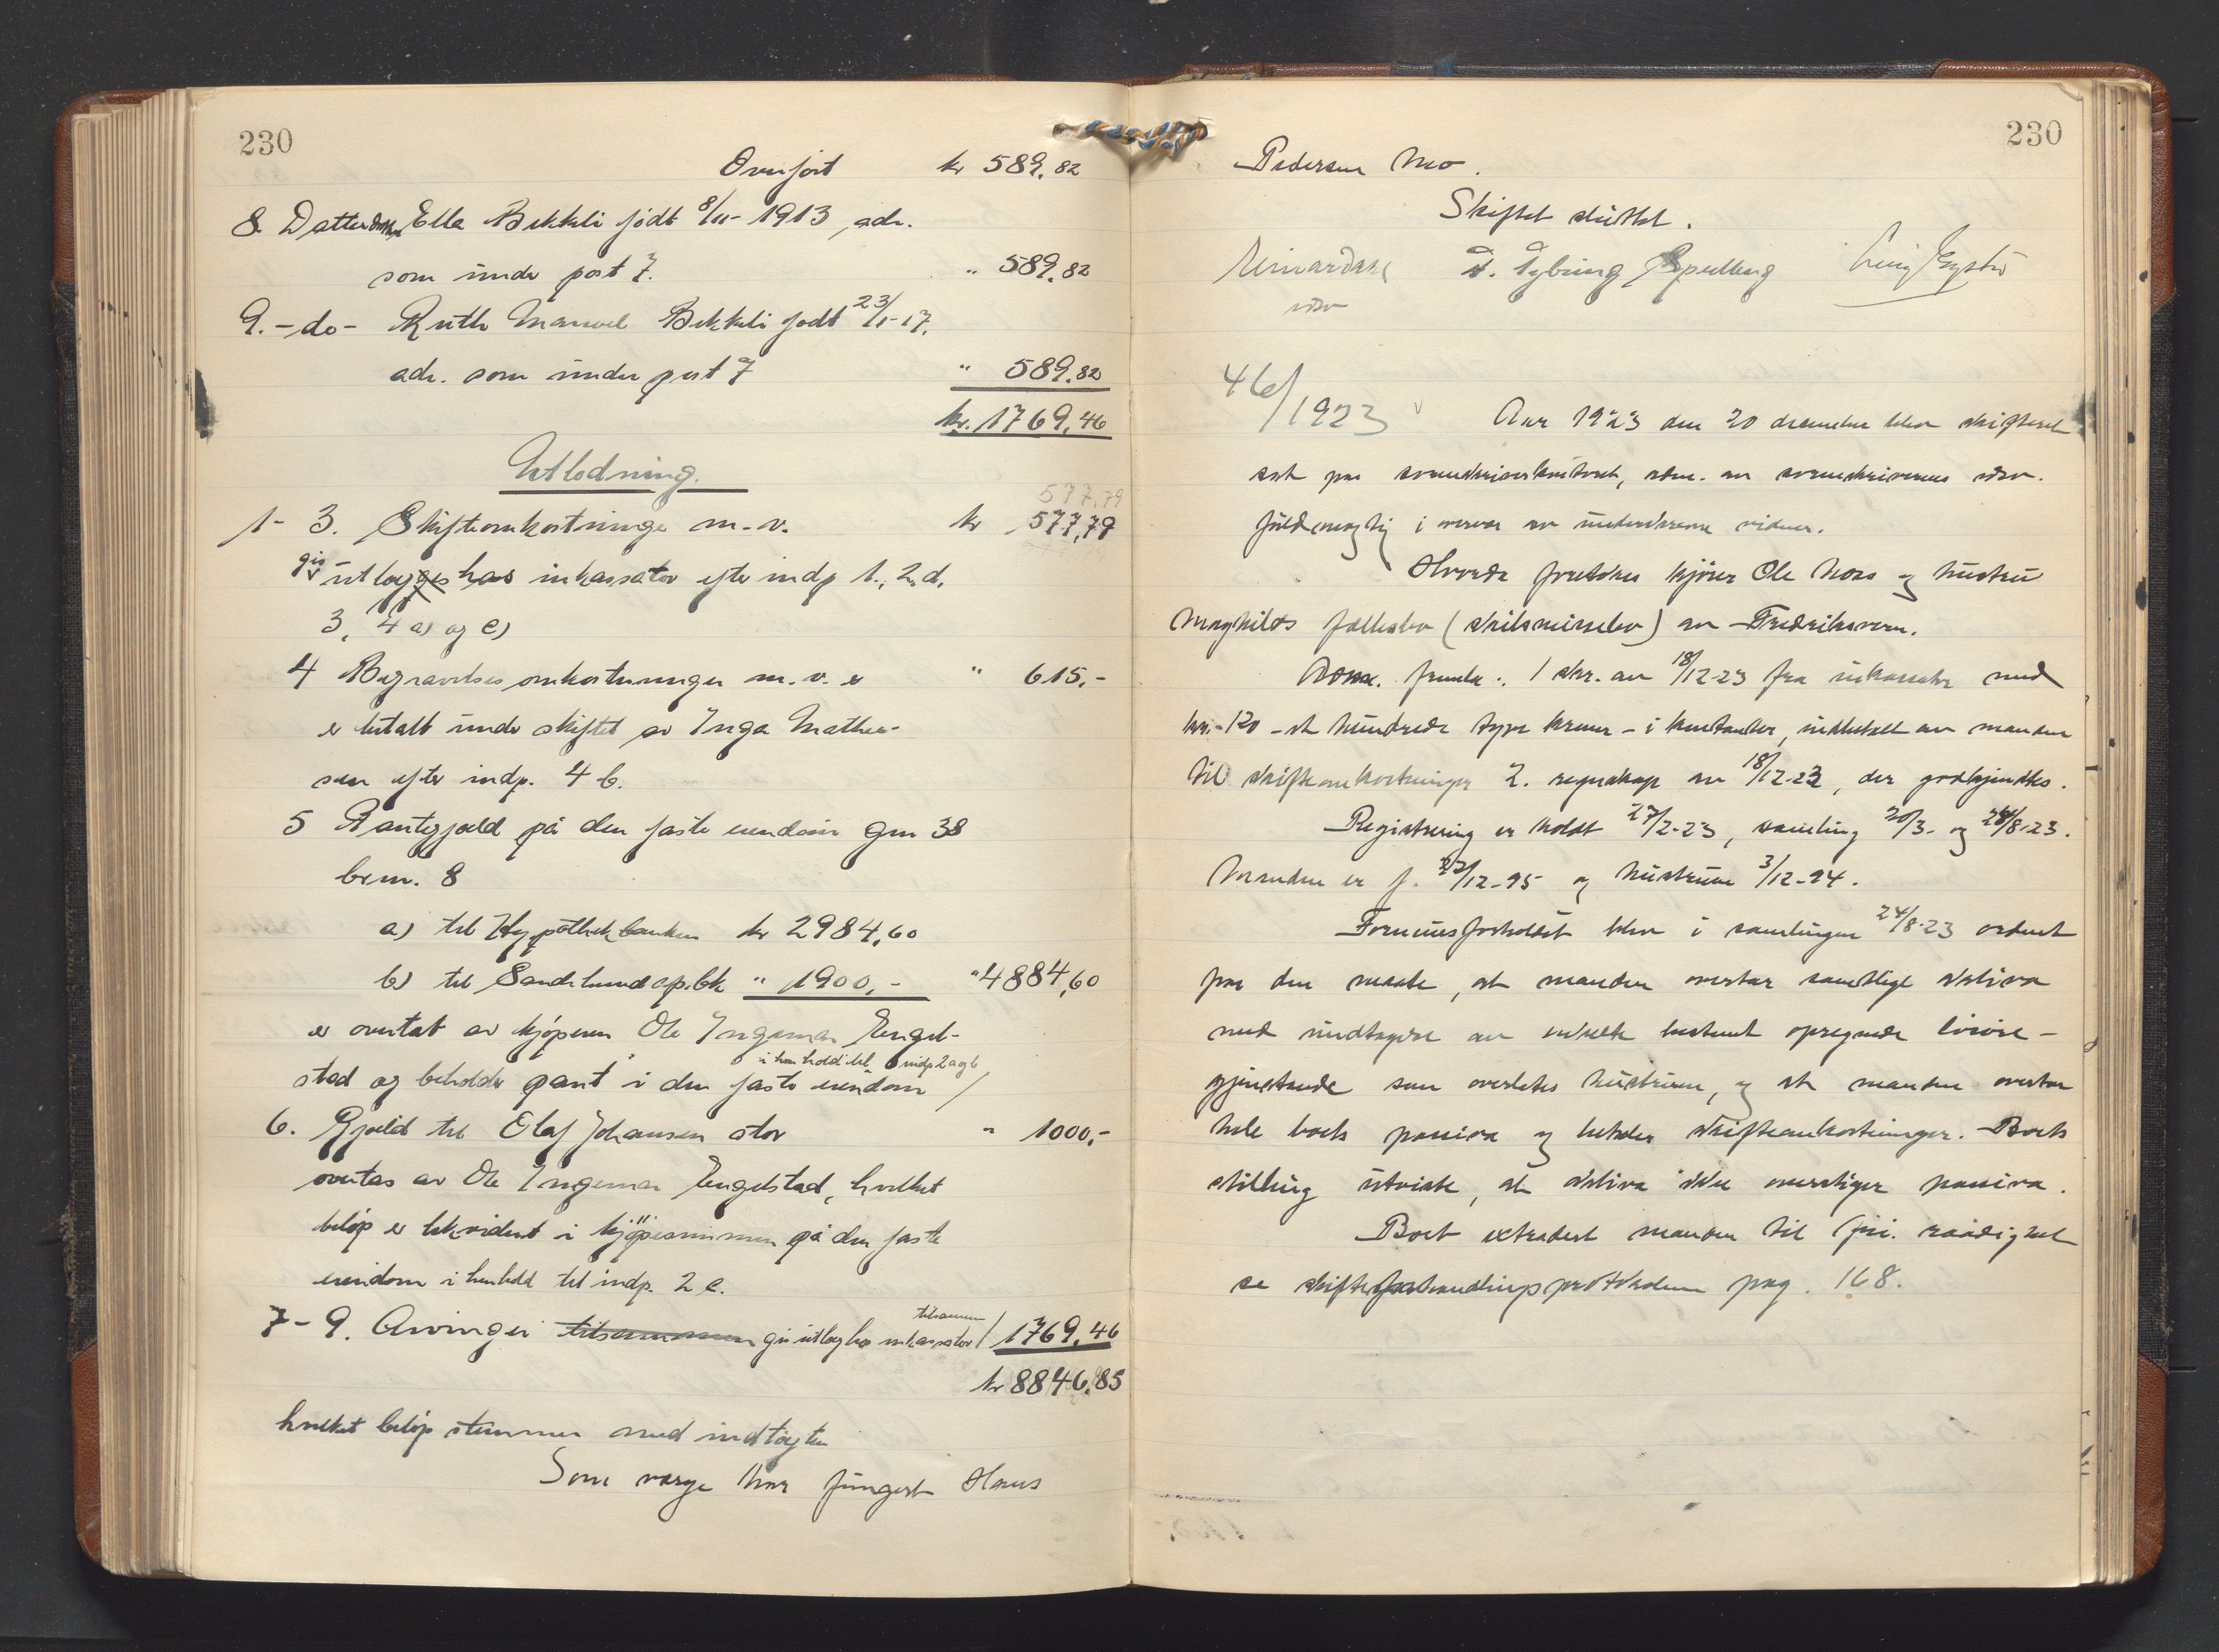 230
Overført kr 589.82
8. Datterdatter Ella Bekkeli født 8/11-1913, adr.
som under post 7. " 589.82
9. -do- Ruth Bekkeli født 23/1-17.
adr. som under post 7 " 589.82
kr. 1769,46
Utlodning.
577,79
1-3. Skifteomkostninger m.v. kr 577,79
gis utlæg hos inkassator efter indp 1., 2.d,
3, 4 a) og c)
4 Begravelsesomkostninger m.v. er " 615,-
er betalt under skiftet av Inga Mathea-
sen efter indp. 4 b.
5 Pantegjæld på den faste eiendom gnr 38
brnr. 8
a) til Hypothekbanken kr 2984,60
b) til Sandehered spbk " 1900,- " 4884,60
er overtat av kjøperen Ole Ingemar Engel-
i henhold til indp 2 a og b
stad og beholder pant i den faste eiendom /
6. Gjæld til Olaf Johansen stor " 1000,-
overtas av Ole Ingemar Engelstad, hvilket
beløp er likvidert i kjøpesummen på den faste
eiendom i henhold til indp. 2 c.
tilsammen
7-9. Arvinger tilsammen gis utlæg hos inkassator / 1769.46
kr 8846.85
hvilket beløp stemmer med indtægten
Som verge har fungert Hans
230
Pedersen Mo.
Skiftet sluttet.
Spellberg
46/1923
Aar 1923 den 20 december blev skifteret
sat paa sorenskriverkontoret, adm. av sorenskriverens edsv.
fuldmægtig i overvær av undertegnede vidner.
Hvorda foretokes kjører Ole Moss og hustru
Maghilds fællesbo (skilsmissebo) av Fredriksvern.
Adm. freml. : 1 skr. av 18/12-23 fra inkassator med
kr. 120 - et hundrede tyve kroner - i kontanter, indbetalt av manden
til skifteomkostninger 2. regnskap av 18/12-23, der godkjendtes.
Registrering er holdt 27/2-23, samling 20/3- og 24/8-23.
Manden er f. 22/12-95 og hustruen 3/12-94.
Formuesforholdet blev i samlingen 24/8-23 ordnet
paa den maate, at manden overtar samtlige aktiva
med undtagelse av enkelte bestemt opregnede løsøre-
gjenstande som overlates hustruen, og at manden overtar
hele boets passiva og betaler skifteomkostninger. Boets
stilling utviste, at aktiva ikke overstiger passiva.
Boet extradert manden til fri raadighet
se skifteforhandlingsprotokollen pag. 168.